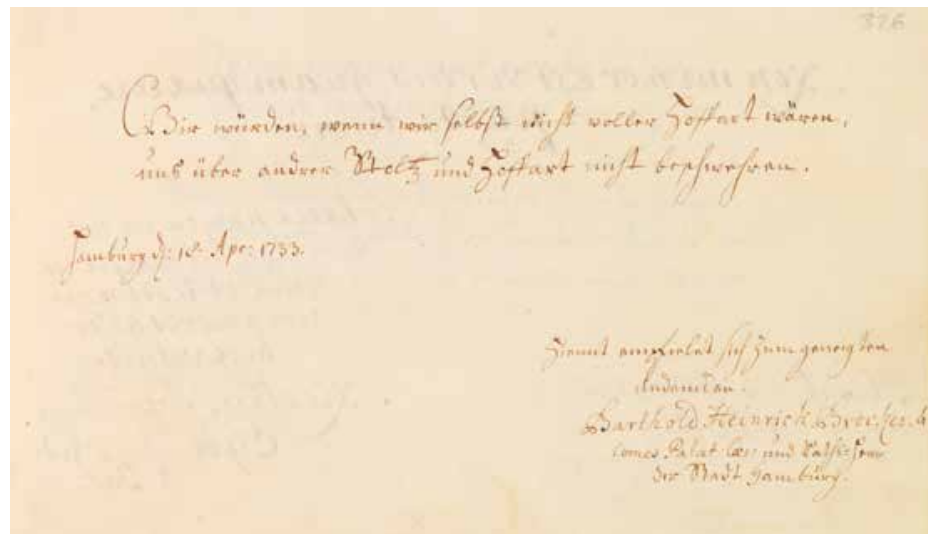 326
Wir würden, wenn wir selbst nicht voller Hoffart wären,
uns über andrer Stoltz und Hoffart nicht beschwehren.
Hamburg d: 18. Apr: 1733.
Hiemit empfielet sich zum geneigten
Andencken.
Barthold Heinrich Brockes.
Comes Palat. Cæs: und Raths-Herr
der Stadt Hamburg.